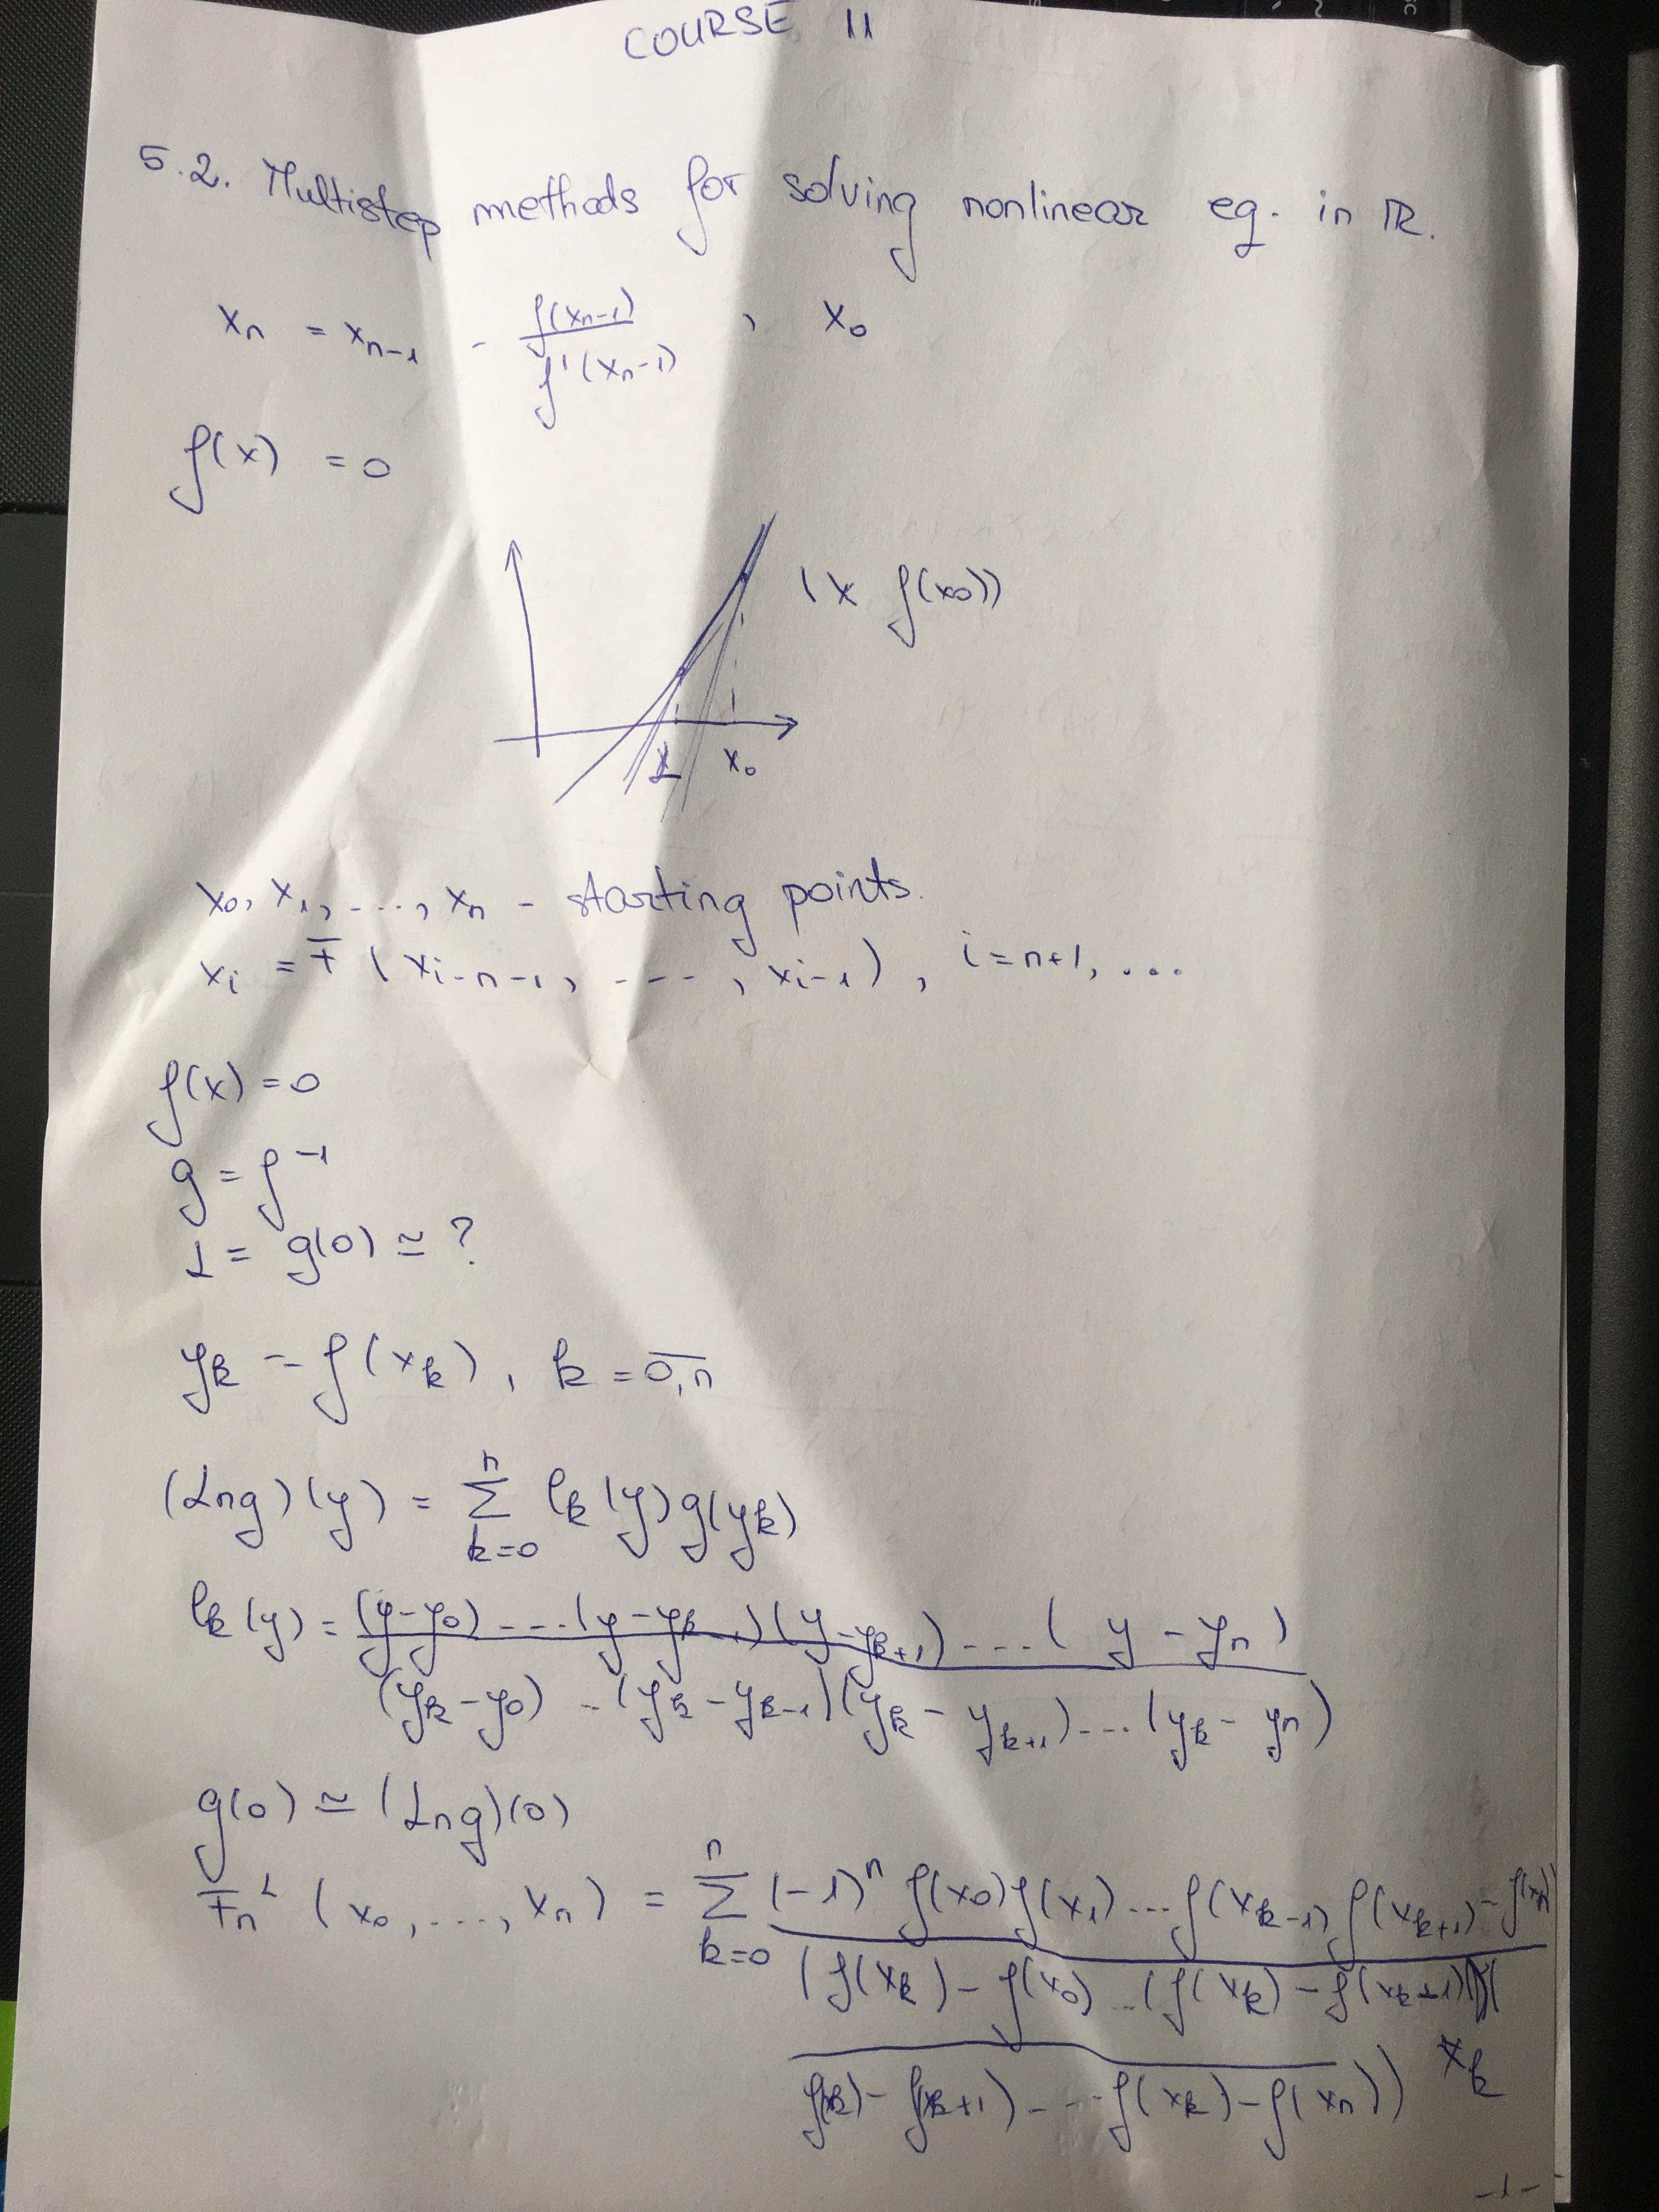 COURSE 11
5.2. Multistep methods for solving nonlinear eq. in ℝ.
xₙ = xₙ₋₁ - f(xₙ₋₁) / f'(xₙ₋₁) , x₀
f(x) = 0
(x f(x₀))
x₀
x₀, x₁, ..., xₙ - starting points.
xᵢ = F (xᵢ₋ₙ₋₁, ----, xᵢ₋₁), i = n+1, ...
f(x) = 0
g = f⁻¹
α = g(0) ≃ ?
yₖ = f(xₖ), k = 0,n
(Lₙg)(y) = Σ k=0 n lₖ(y) g(yₖ)
lₖ(y) = (y-y₀) ... (y-yₖ₋₁)(y-yₖ₊₁) ... (y-yₙ)
(yₖ-y₀) .. (yₖ-yₖ₋₁)(yₖ-yₖ₊₁) ... (yₖ-yₙ)
g(0) ≃ (Lₙg)(0)
Fₙᴸ (x₀, ..., xₙ) = Σ k=0 n (-1)ⁿ f(x₀) f(x₁) ... f(xₖ₋₁) f(xₖ₊₁) - f(xₙ)
(f(xₖ) - f(x₀) .. (f(xₖ) - f(xₖ₊₁))(
f(xₖ) - f(xₖ₊₁) ... f(xₖ) - f(xₙ)) xₖ
-1-